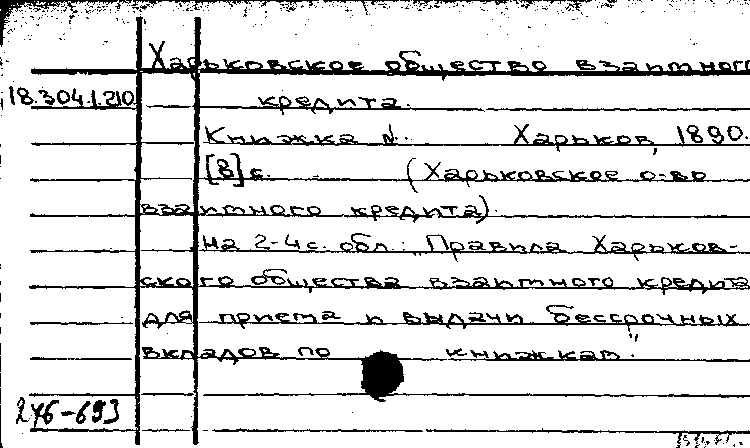 Харьковское общество взаимного
18.304.1.210
кредита.
Книжка №. Харьков, 1890.
[8] с. (Харьковское о-во
взаимного кредита).
На 2-4 с. обл.: "Правила Харьков-
ского общества взаимного кредита
для приема и выдачи бессрочных
вкладов по книжкам".
246-693